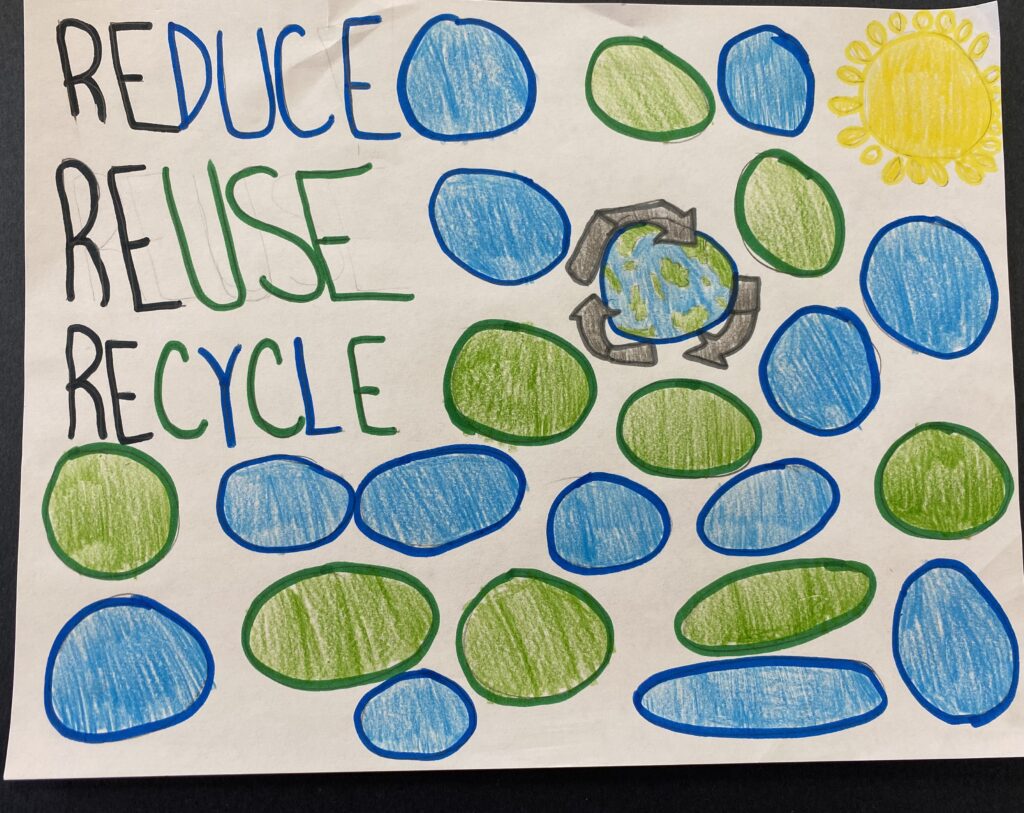 REDUCE
REUSE
RECYCLE